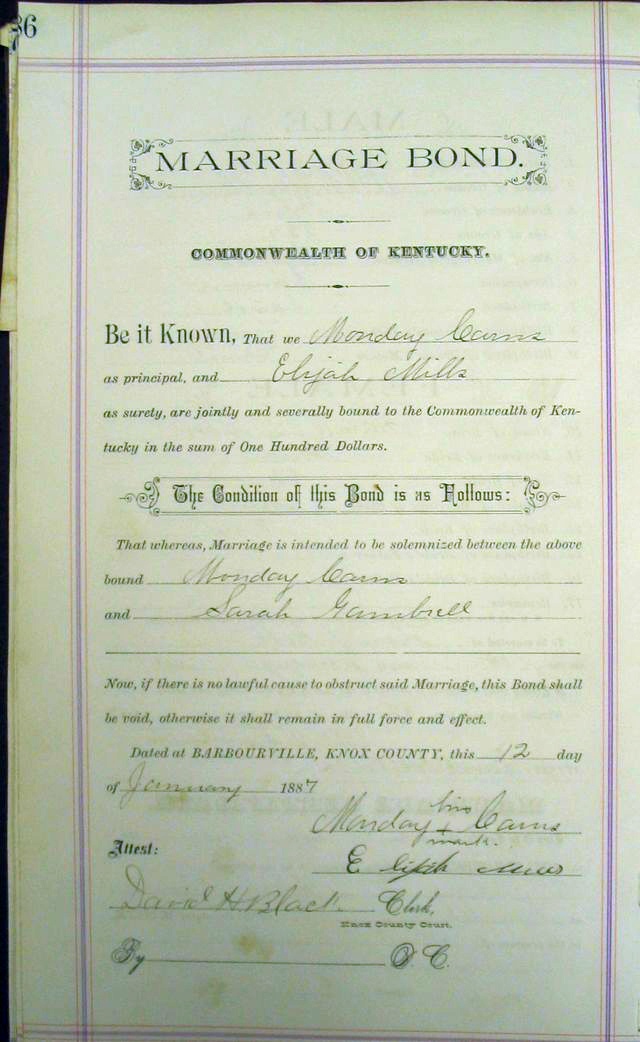 86
MARRIAGE BOND.
COMMONWEALTH OF KENTUCKY.
Be it Known, That we Monday Carns
as principal, and Elijah Mills
as surety, are jointly and severally bound to the Commonwealth of Ken-
tucky in the sum of One Hundred Dollars.
The Condition of this Bond is as Follows:
That whereas, Marriage is intended to be solemnized between the above
bound Monday Carns
and Sarah Gambrell
Now, if there is no lawful cause to obstruct said Marriage, this Bond shall
be void, otherwise it shall remain in full force and effect.
Dated at BARBOURVILLE, KNOX COUNTY, this 12 day
of January 1887
his
Monday + Carns
mark.
Attest:
Elijah Mills
David H Black Clerk,
Knox County Court.
By D. C.